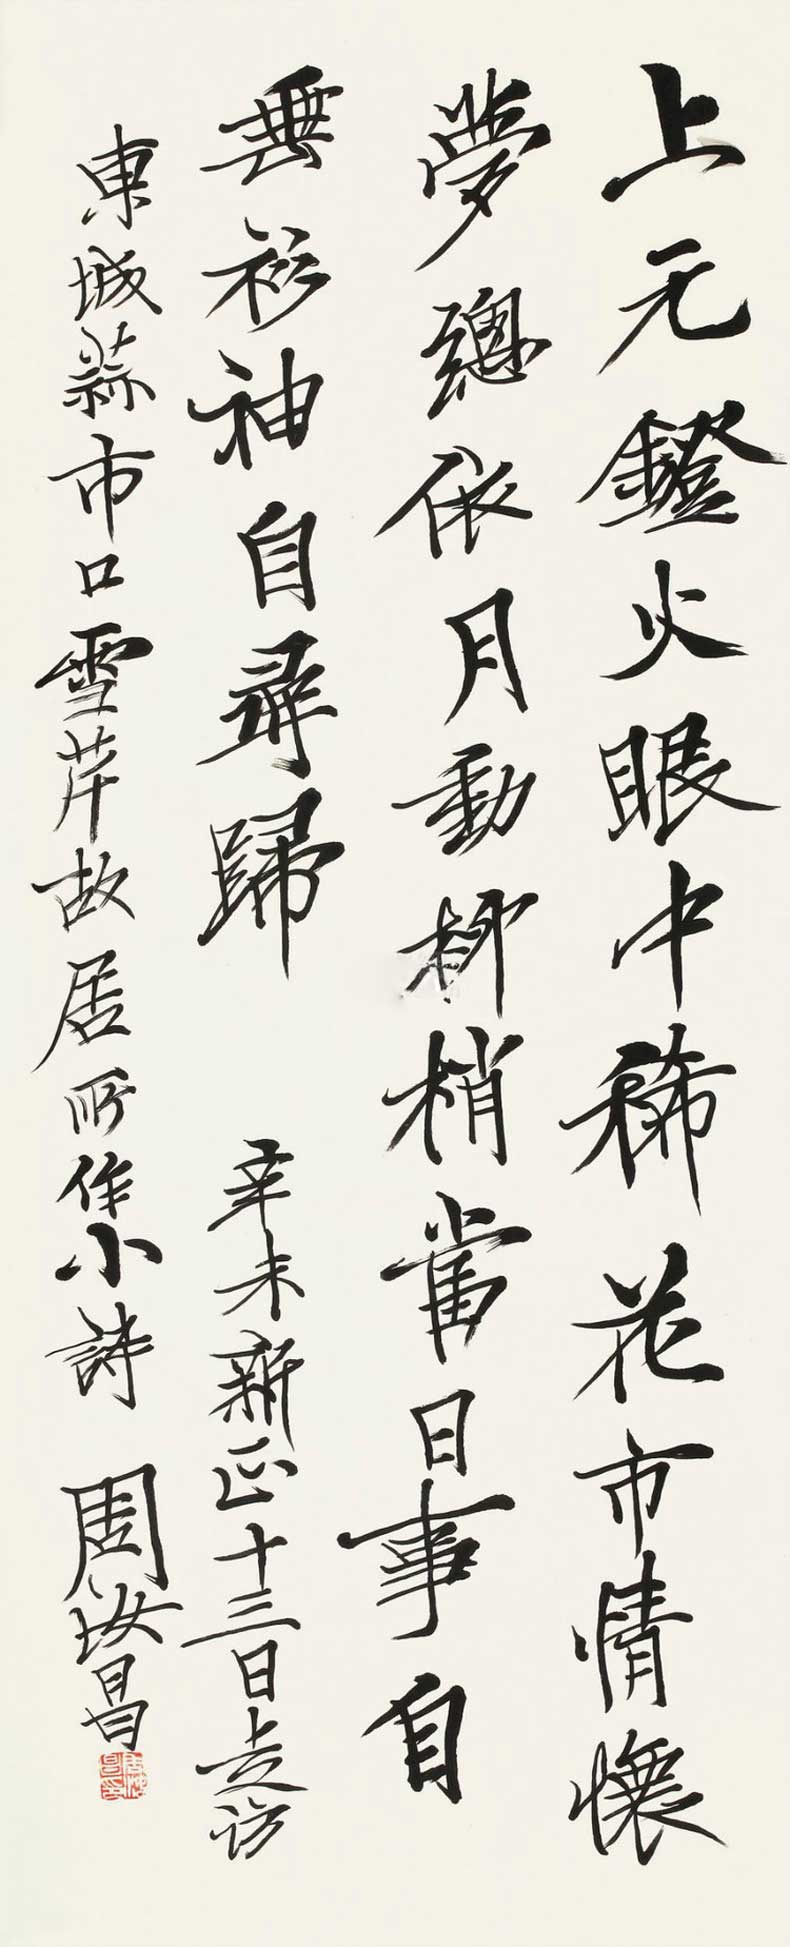 上元鐙火眼中稀花市情懷
夢總依月動柳梢當日事自
垂衫袖自尋歸 辛未新正十三日走訪
東城蒜市口雪芹故居所作小詩 周汝昌